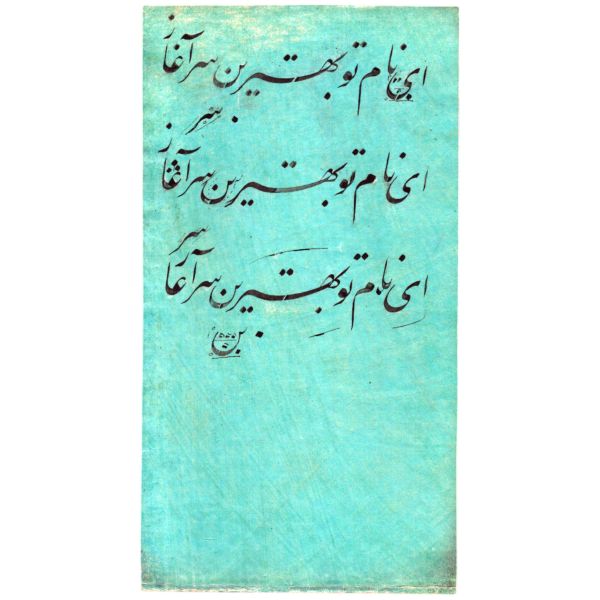 ای نام تو بهترین سرآغاز
سر
ای نام تو بهترین سرآغاز
سر
ای نام تو بهترین سرآغاز